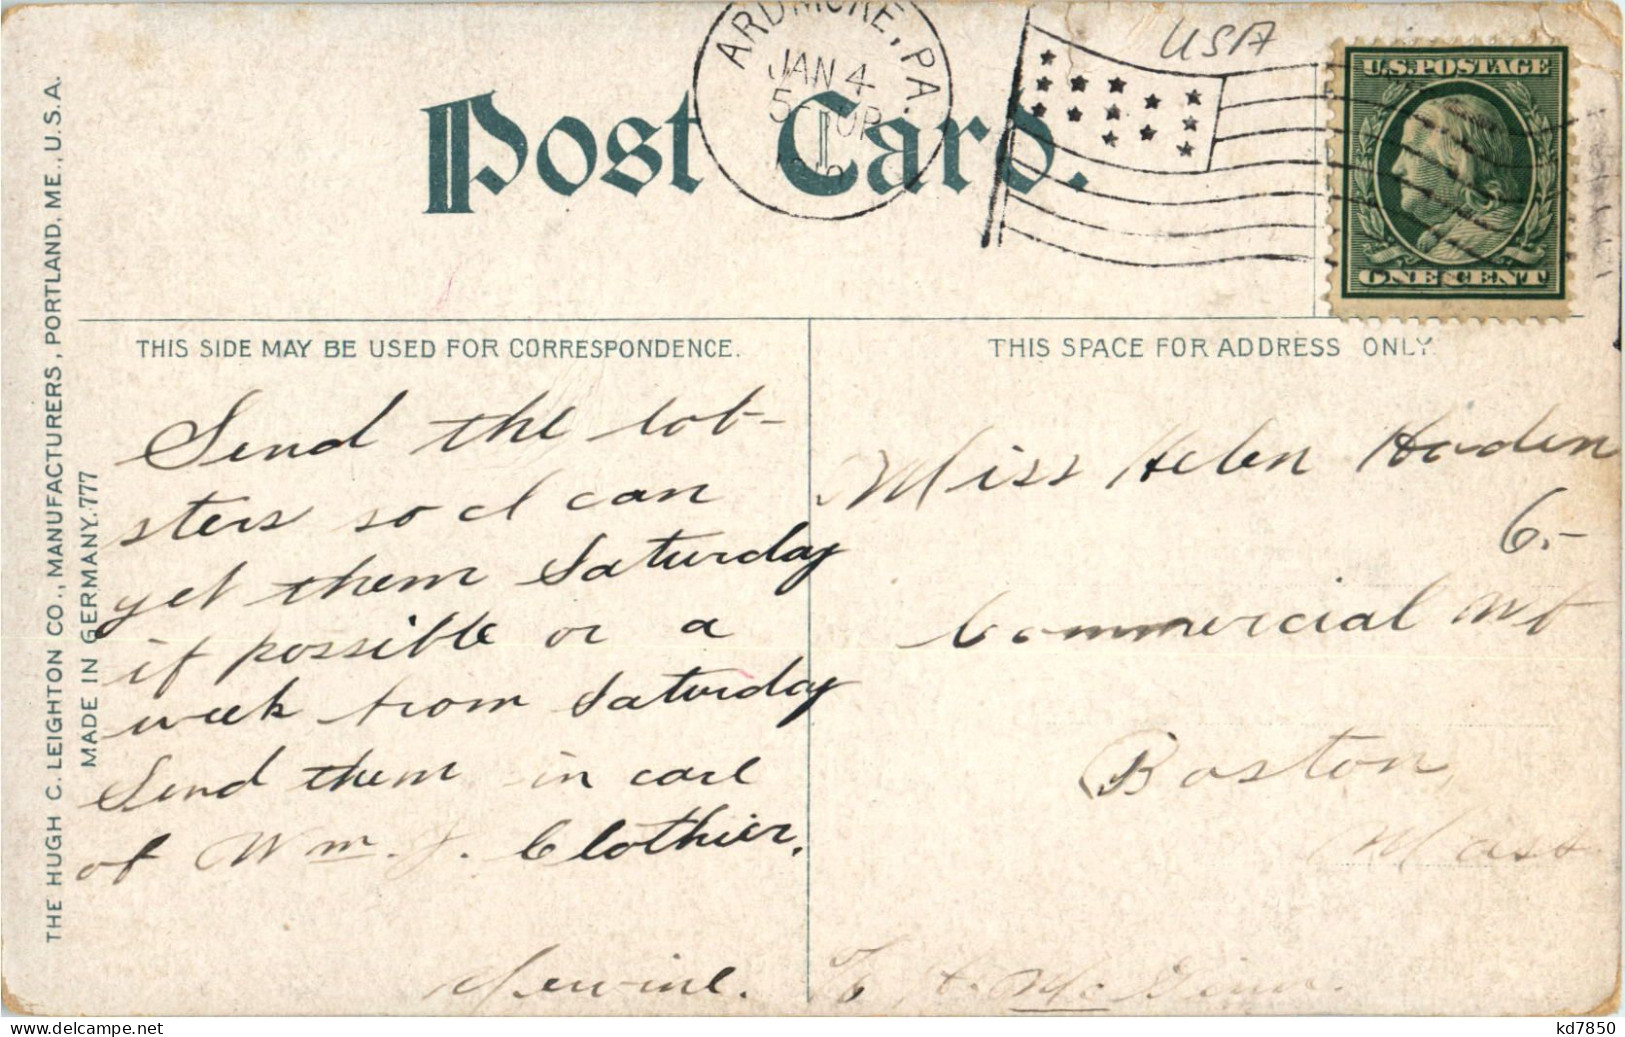 ARDMORE, PA.
JAN 4
USA
U.S. POSTAGE
ONE CENT
Post Card.
THIS SIDE MAY BE USED FOR CORRESPONDENCE.
THIS SPACE FOR ADDRESS ONLY.
THE HUGH C. LEIGHTON CO., MANUFACTURERS, PORTLAND, ME., U.S.A.
MADE IN GERMANY. 777
Send the lob-
sters so I can
get them Saturday
if possible or a
week from Saturday
Send them in care
of Wm. J. Clothier.
Miss Helen
6.-
Commercial
Boston,
Mass
kd7850